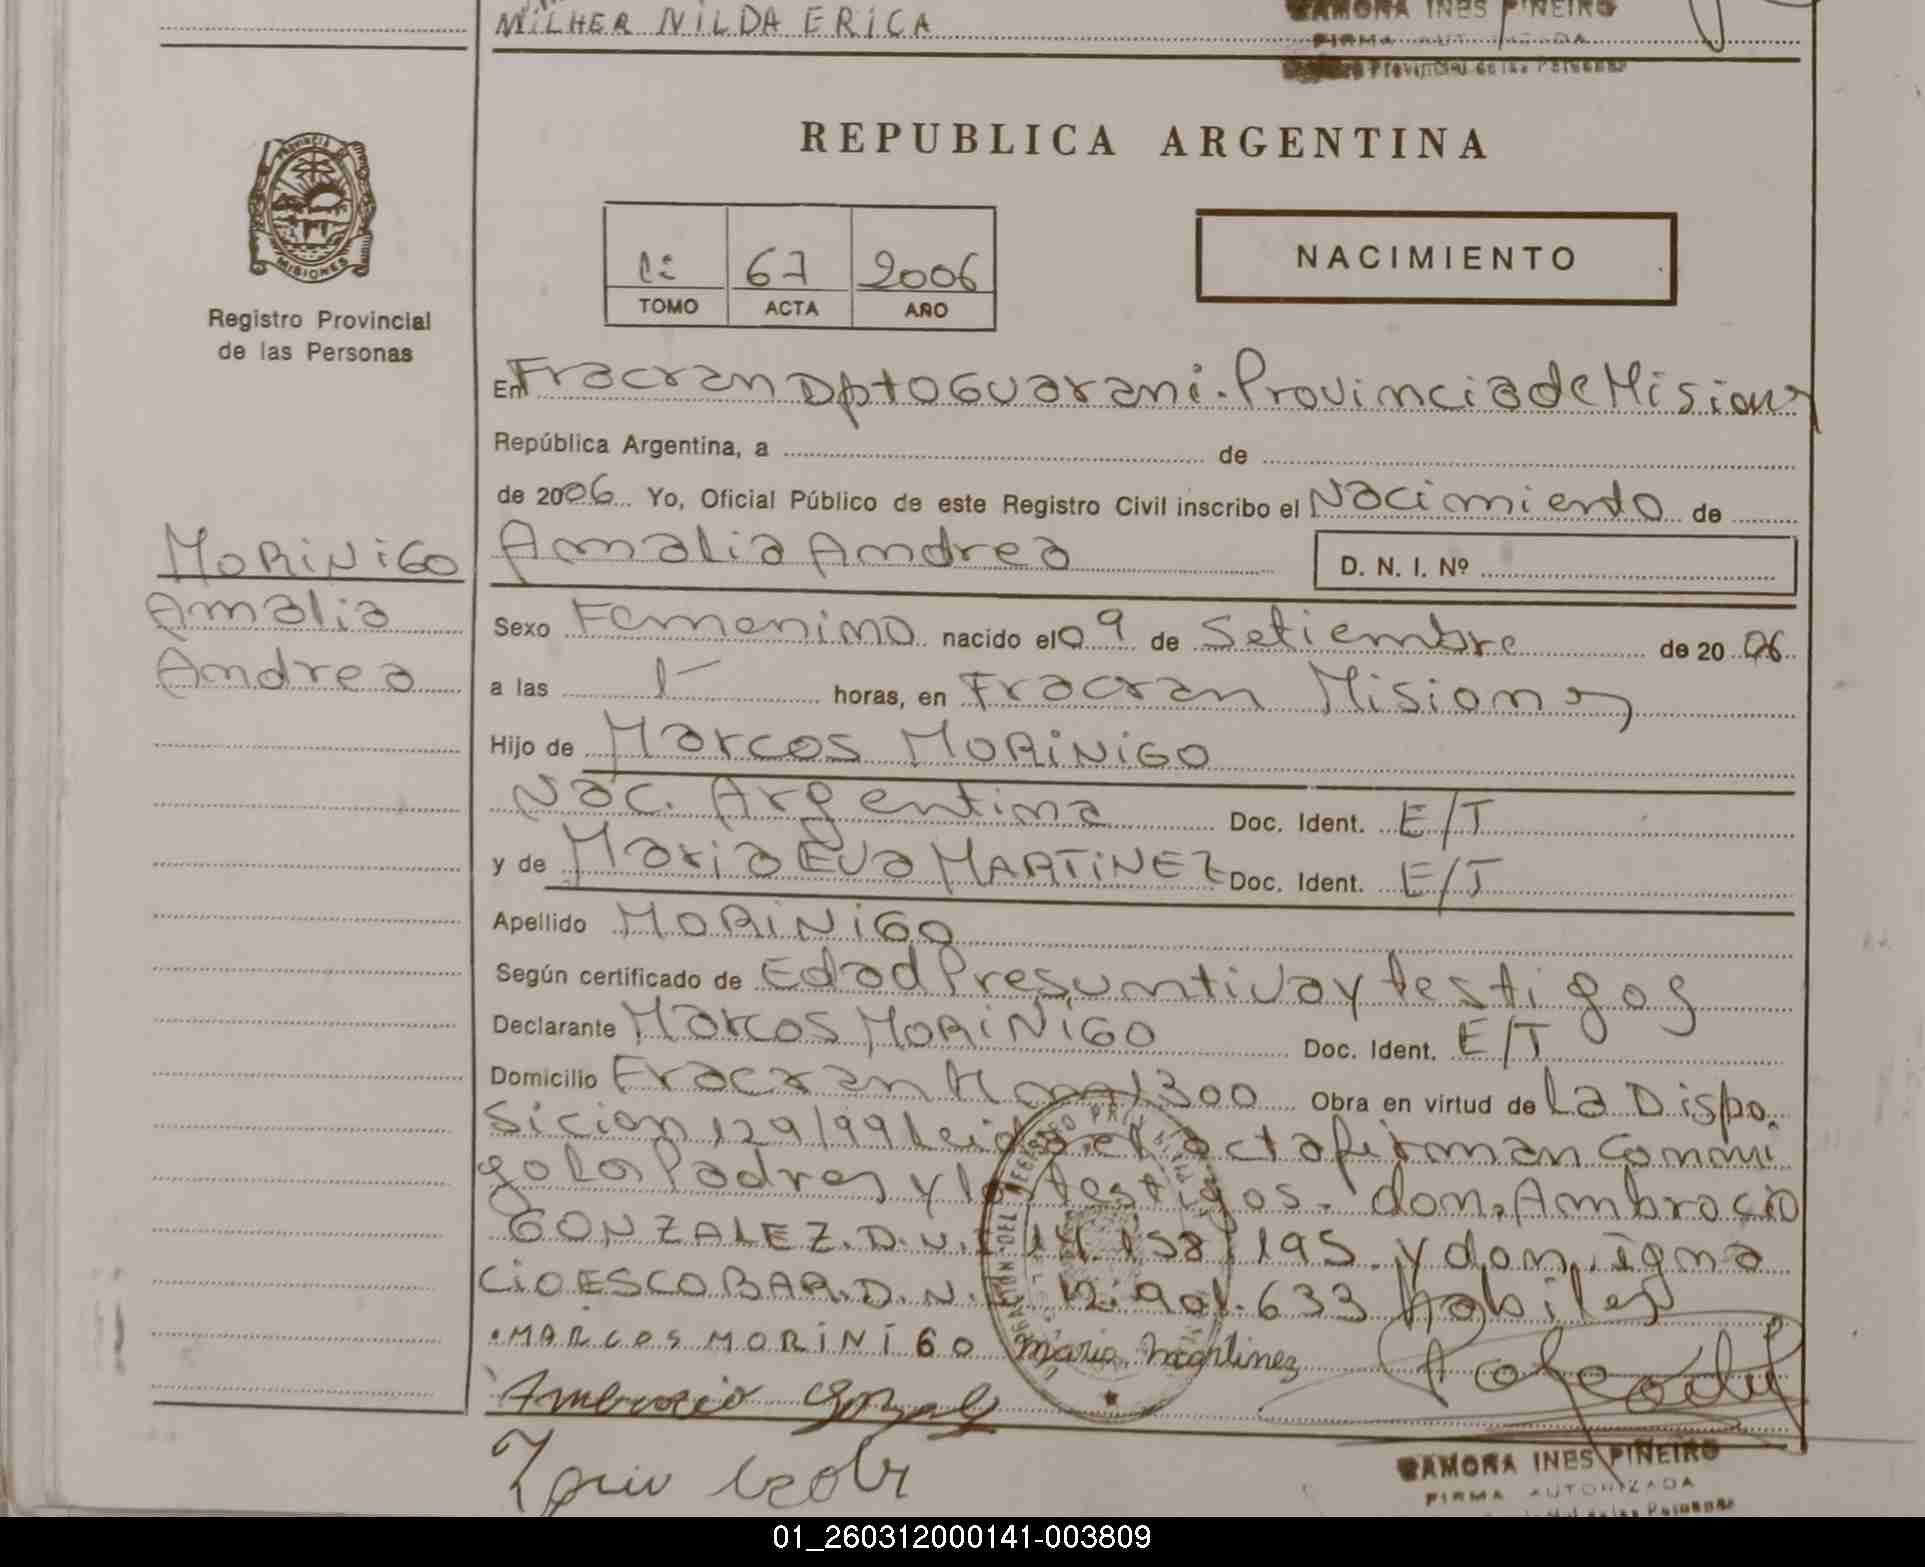 MILHER NILDA ERICA
RAMONA INES PIÑEIRO
FIRMA AUTORIZADA
Registro Provincial de las Personas
PROVINCIA DE
MISIONES
Registro Provincial
de las Personas
REPUBLICA ARGENTINA
67 2006
TOMO ACTA AÑO
NACIMIENTO
En Fracran Dpto Guarani. Provincia de Misiones
República Argentina, a de
de 2006 Yo, Oficial Público de este Registro Civil inscribo el Nacimiento de
Amalia Andrea
D. N. I. Nº
MORINIGO
Amalia
Andrea
Sexo Femenino nacido el 09 de Setiembre de 2006
a las horas, en Fracran Misiones
Hijo de Marcos MORINIGO
Nac. Argentina Doc. Ident. E/T
y de Maria Eva MARTINEZ Doc. Ident. E/T
Apellido MORINIGO
Según certificado de Edad Presuntiva y testigos
Declarante Marcos MORINIGO Doc. Ident. E/T
Domicilio Fracran Km 1300 Obra en virtud de La Dispo.
sicion 129/99 Leida el acta firman conmi
go los Padres y los testigos. don, Ambrocio
GONZALEZ. D.N.I 14.158.195 y don, igna
cio ESCOBAR. D.N.I 12.901.633 habiles
MARCOS MORINIGO maria martinez
Ambrosio Gonzalez
RAMONA INES PIÑEIRO
FIRMA AUTORIZADA
01_260312000141-003809